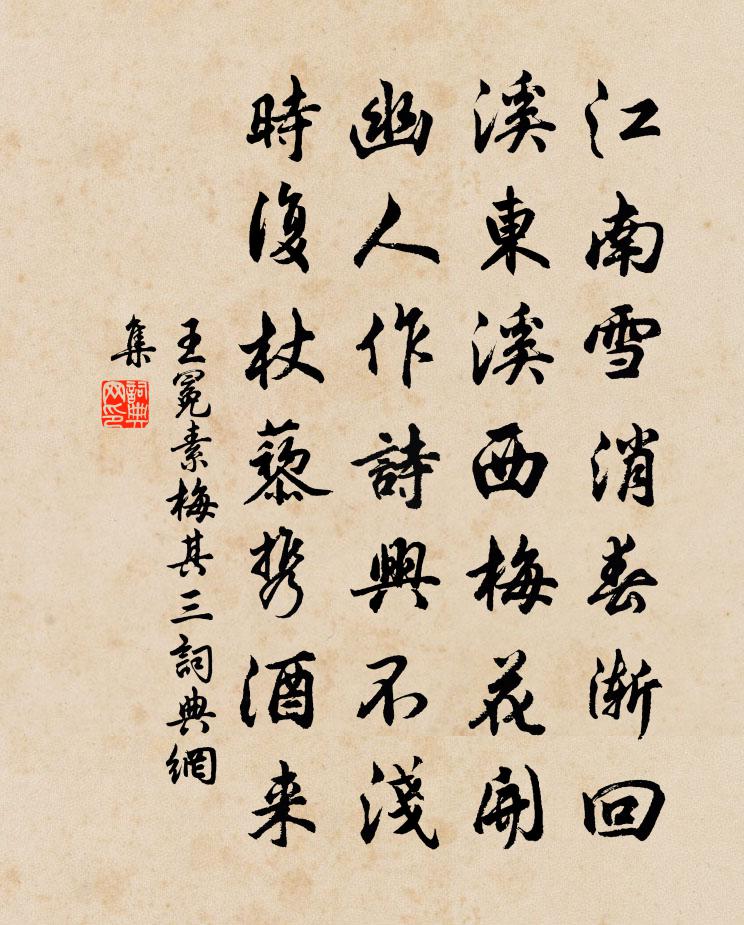 江南雪消春漸回
溪東溪西梅花開
幽人作詩興不淺
時復杖藜携酒来
王冕素梅其三詞典網
集
詞典
网印